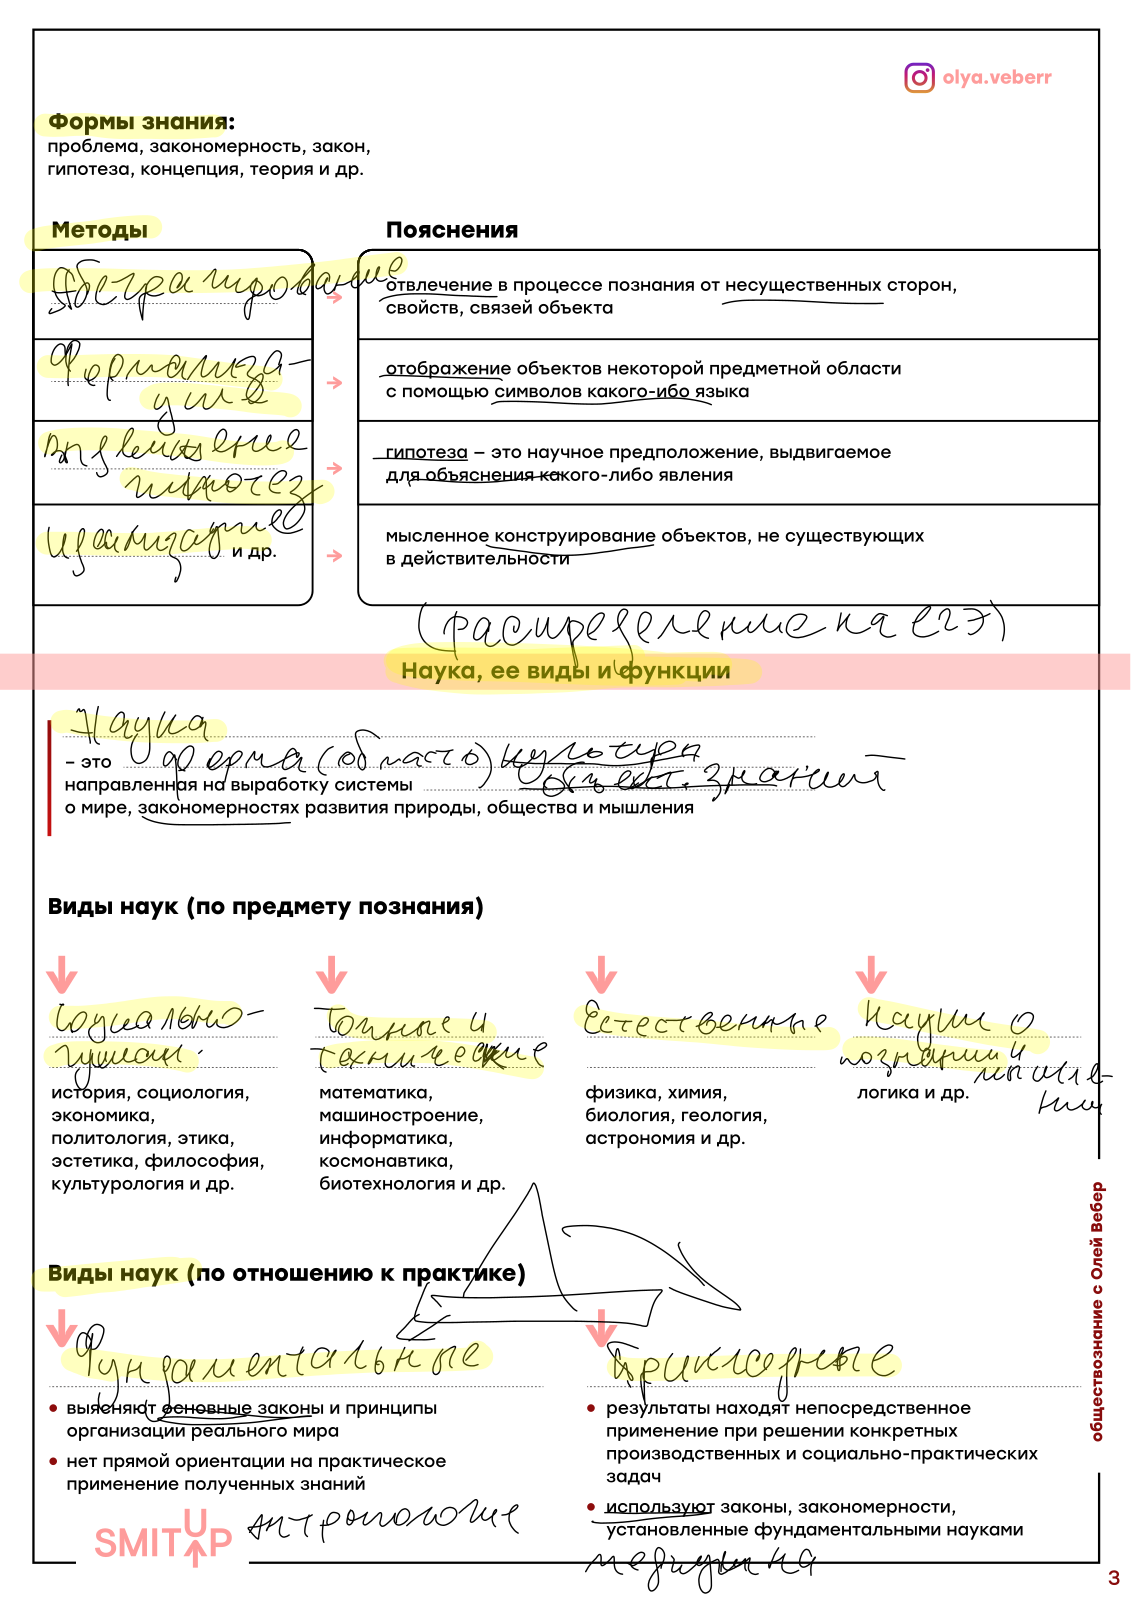 olya.veberr
Формы знания:
проблема, закономерность, закон,
гипотеза, концепция, теория и др.
Методы
Пояснения
Абстрагирование
отвлечение в процессе познания от несущественных сторон,
свойств, связей объекта
Формализа-
ция
отображение объектов некоторой предметной области
с помощью символов какого-ибо языка
Выдвижение
гипотез
гипотеза – это научное предположение, выдвигаемое
для объяснения какого-либо явления
идеализация и др.
мысленное конструирование объектов, не существующих
в действительности
(распределение на ЕГЭ)
Наука, ее виды и функции
Наука
– это форма (область) культуры
направленная на выработку системы объект. знаний
о мире, закономерностях развития природы, общества и мышления
Виды наук (по предмету познания)
Социально-
гуман.
история, социология,
экономика,
политология, этика,
эстетика, философия,
культурология и др.
Точные и
технические
математика,
машиностроение,
информатика,
космонавтика,
биотехнология и др.
Естественные
физика, химия,
биология, геология,
астрономия и др.
Науки о
познании и
мышле-
нии
логика и др.
Виды наук (по отношению к практике)
Фундаментальные
выясняют основные законы и принципы
организации реального мира
нет прямой ориентации на практическое
применение полученных знаний
антропология
Прикладные
результаты находят непосредственное
применение при решении конкретных
производственных и социально-практических
задач
используют законы, закономерности,
установленные фундаментальными науками
медицина
обществознание с Олей Вебер
SMITUP
3